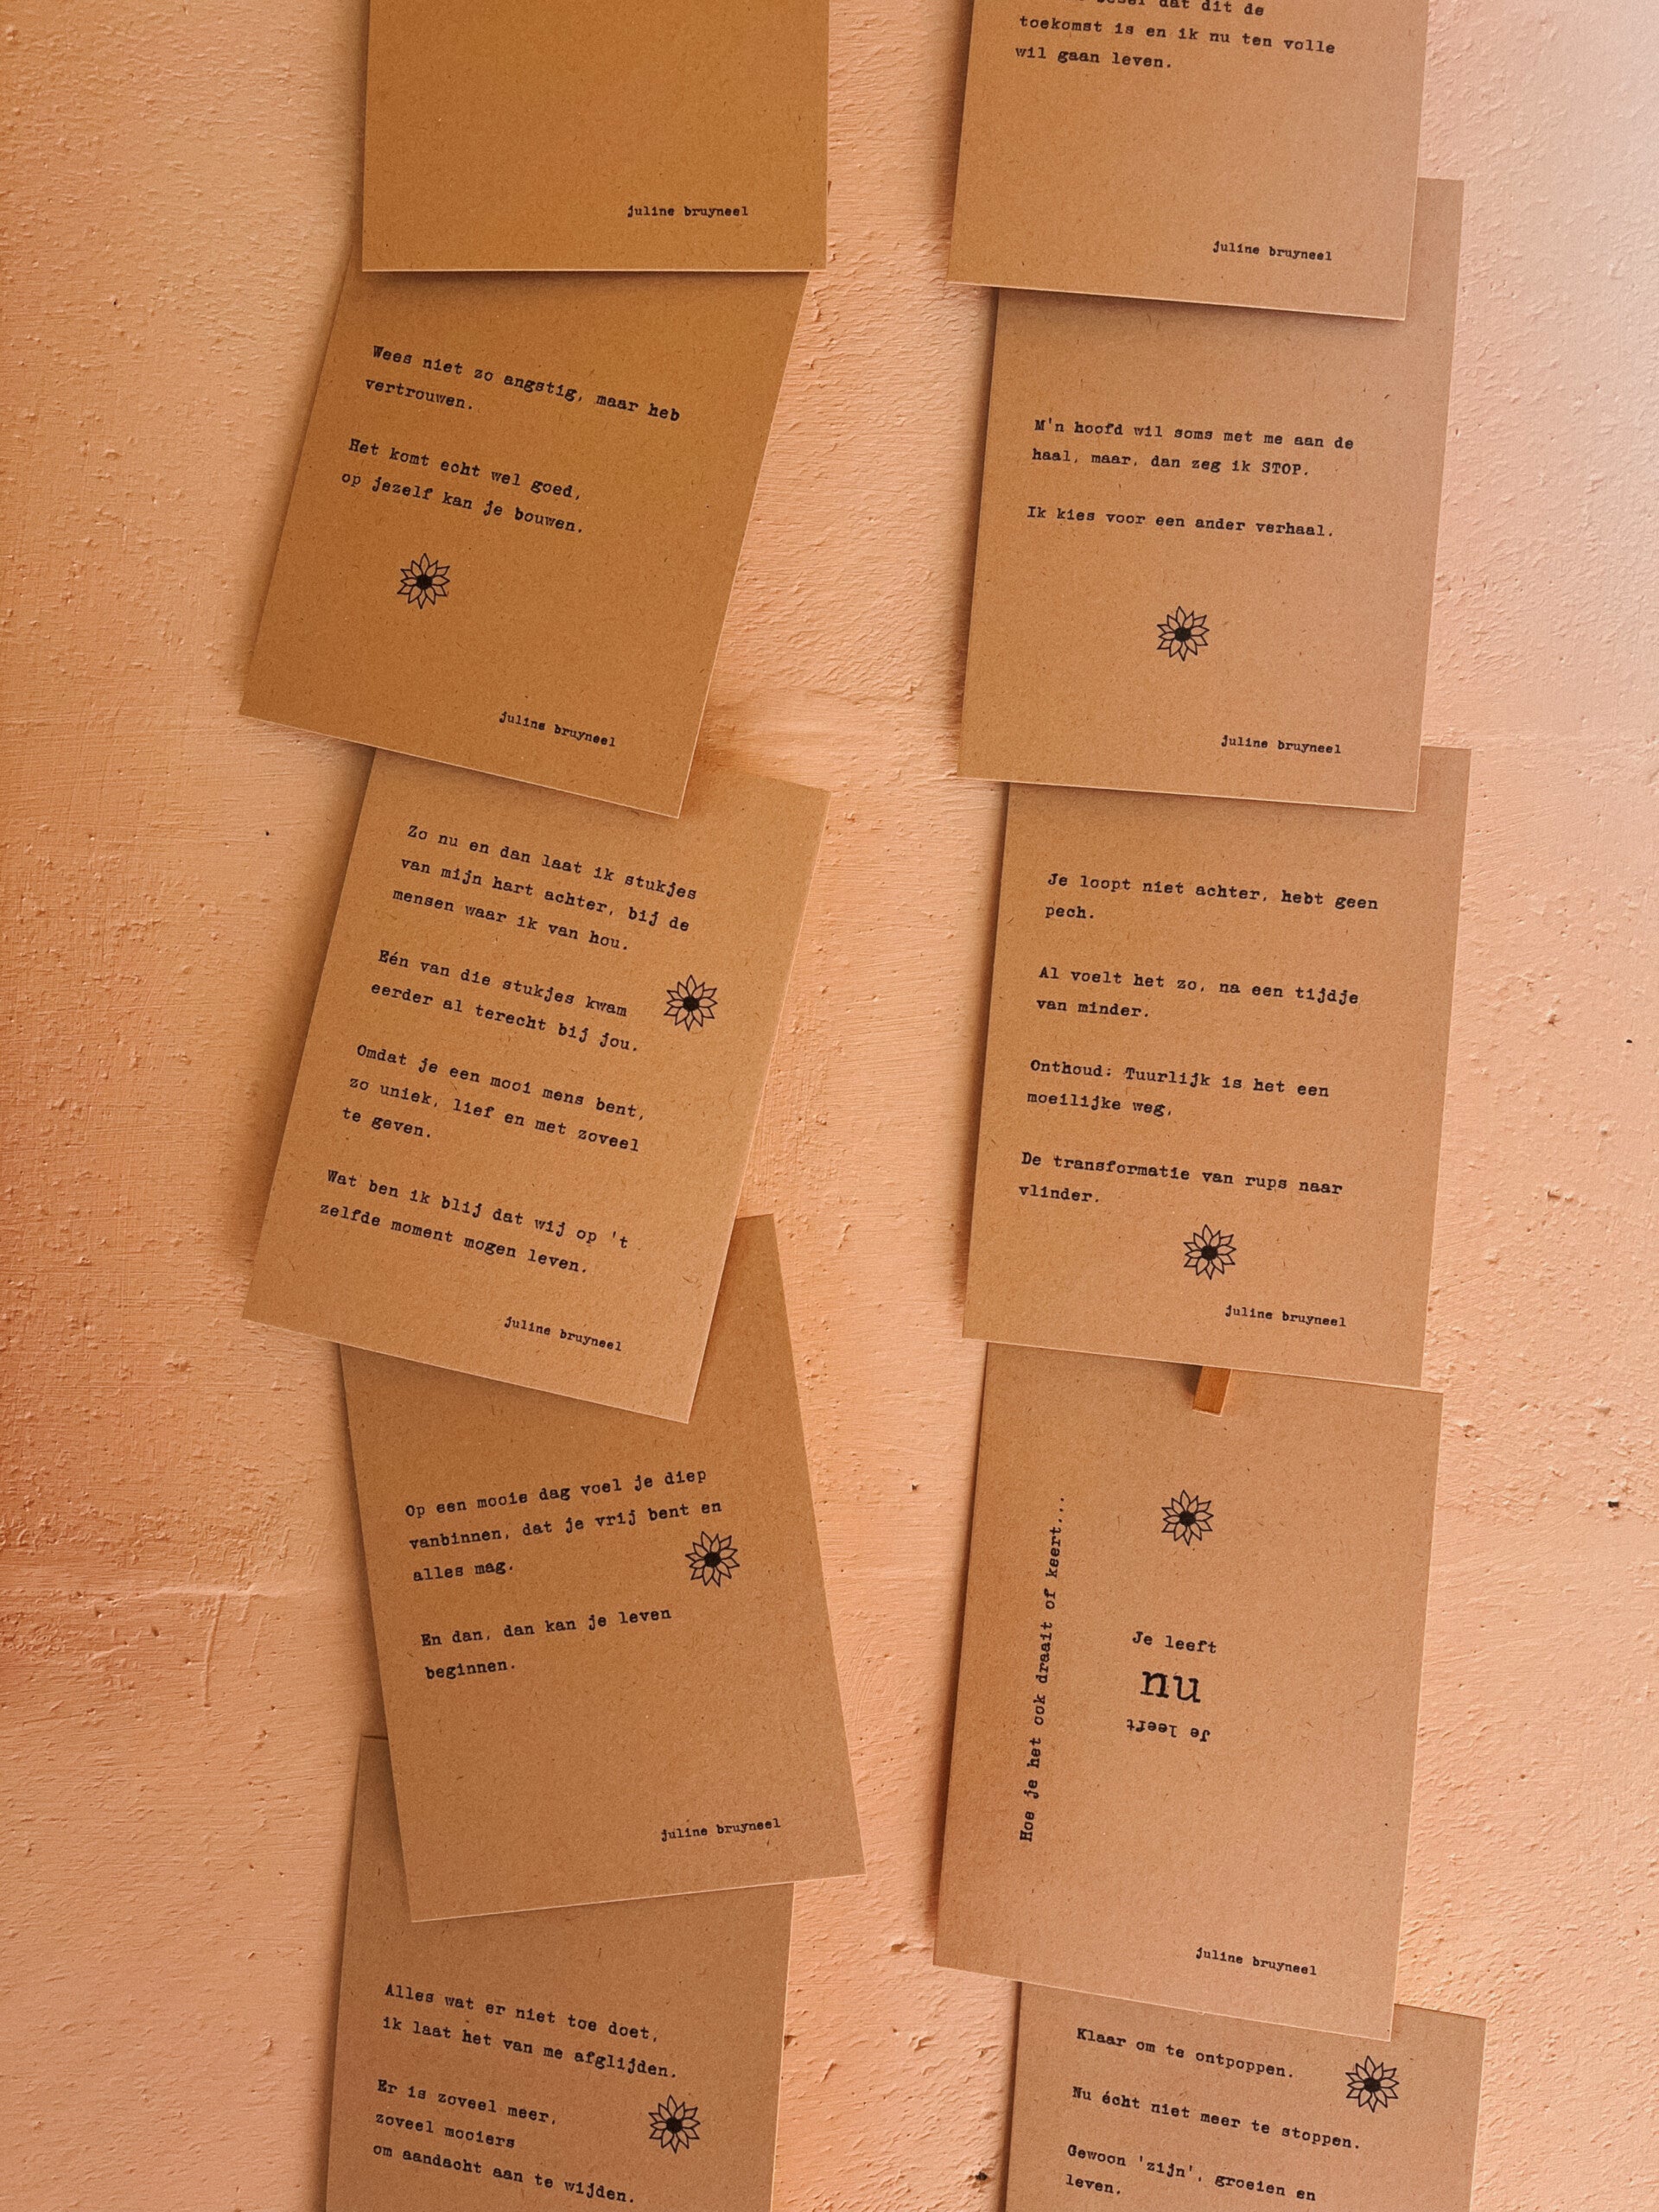 juline bruyneel
Wees niet zo angstig, maar heb
vertrouwen.
Het komt echt wel goed,
op jezelf kan je bouwen.
juline bruyneel
Zo nu en dan laat ik stukjes
van mijn hart achter, bij de
mensen waar ik van hou.
Eén van die stukjes kwam
eerder al terecht bij jou.
Omdat je een mooi mens bent,
zo uniek, lief en met zoveel
te geven.
Wat ben ik blij dat wij op 't
zelfde moment mogen leven.
juline bruyneel
Op een mooie dag voel je diep
vanbinnen, dat je vrij bent en
alles mag.
En dan, dan kan je leven
beginnen.
juline bruyneel
Alles wat er niet toe doet,
ik laat het van me afglijden.
Er is zoveel meer,
zoveel mooiers
om aandacht aan te wijden.
dat dit de
toekomst is en ik nu ten volle
wil gaan leven.
juline bruyneel
M'n hoofd wil soms met me aan de
haal, maar, dan zeg ik STOP.
Ik kies voor een ander verhaal.
juline bruyneel
Je loopt niet achter, hebt geen
pech.
Al voelt het zo, na een tijdje
van minder.
Onthoud: Tuurlijk is het een
moeilijke weg,
De transformatie van rups naar
vlinder.
juline bruyneel
Hoe je het ook draait of keert...
Je leeft
nu
Je leeft
juline bruyneel
Klaar om te ontpoppen.
Nu écht niet meer te stoppen.
Gewoon 'zijn', groeien en
leven.